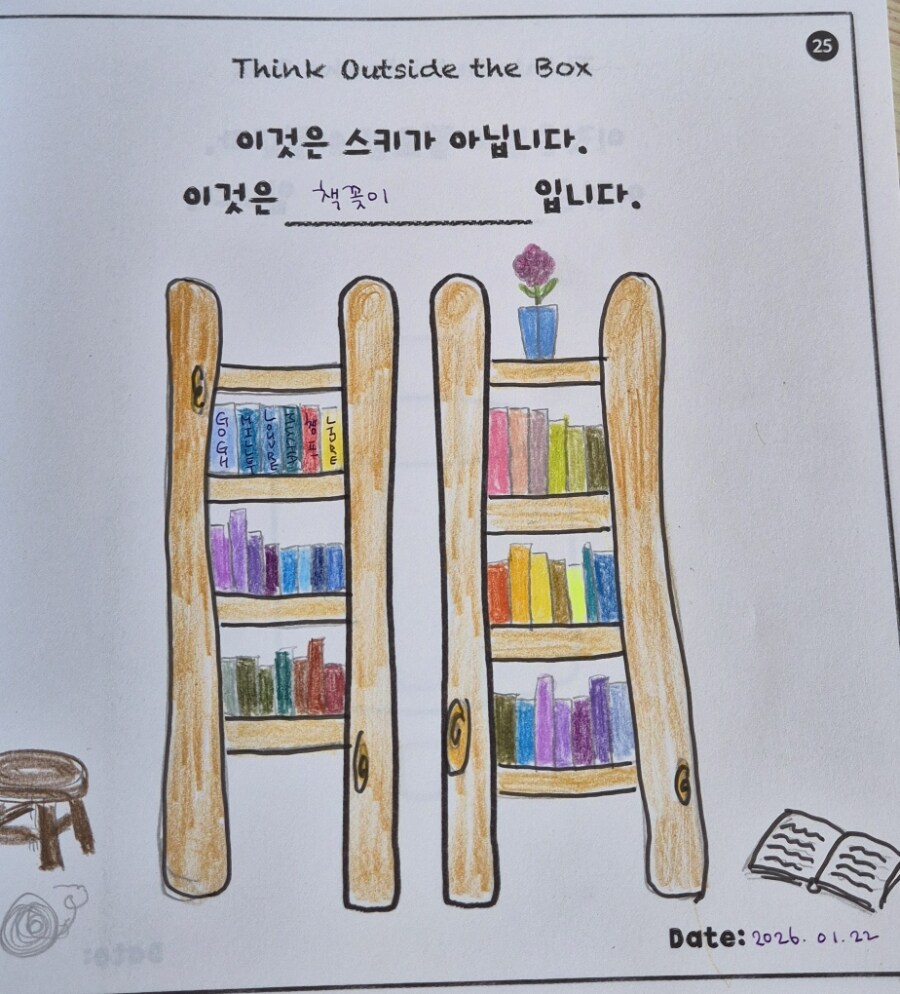 25
Think Outside the Box
이것은 스키가 아닙니다.
이것은 책꽂이 입니다.
GOGH
MILLET
LOUVRE
Date: 2026. 01. 22